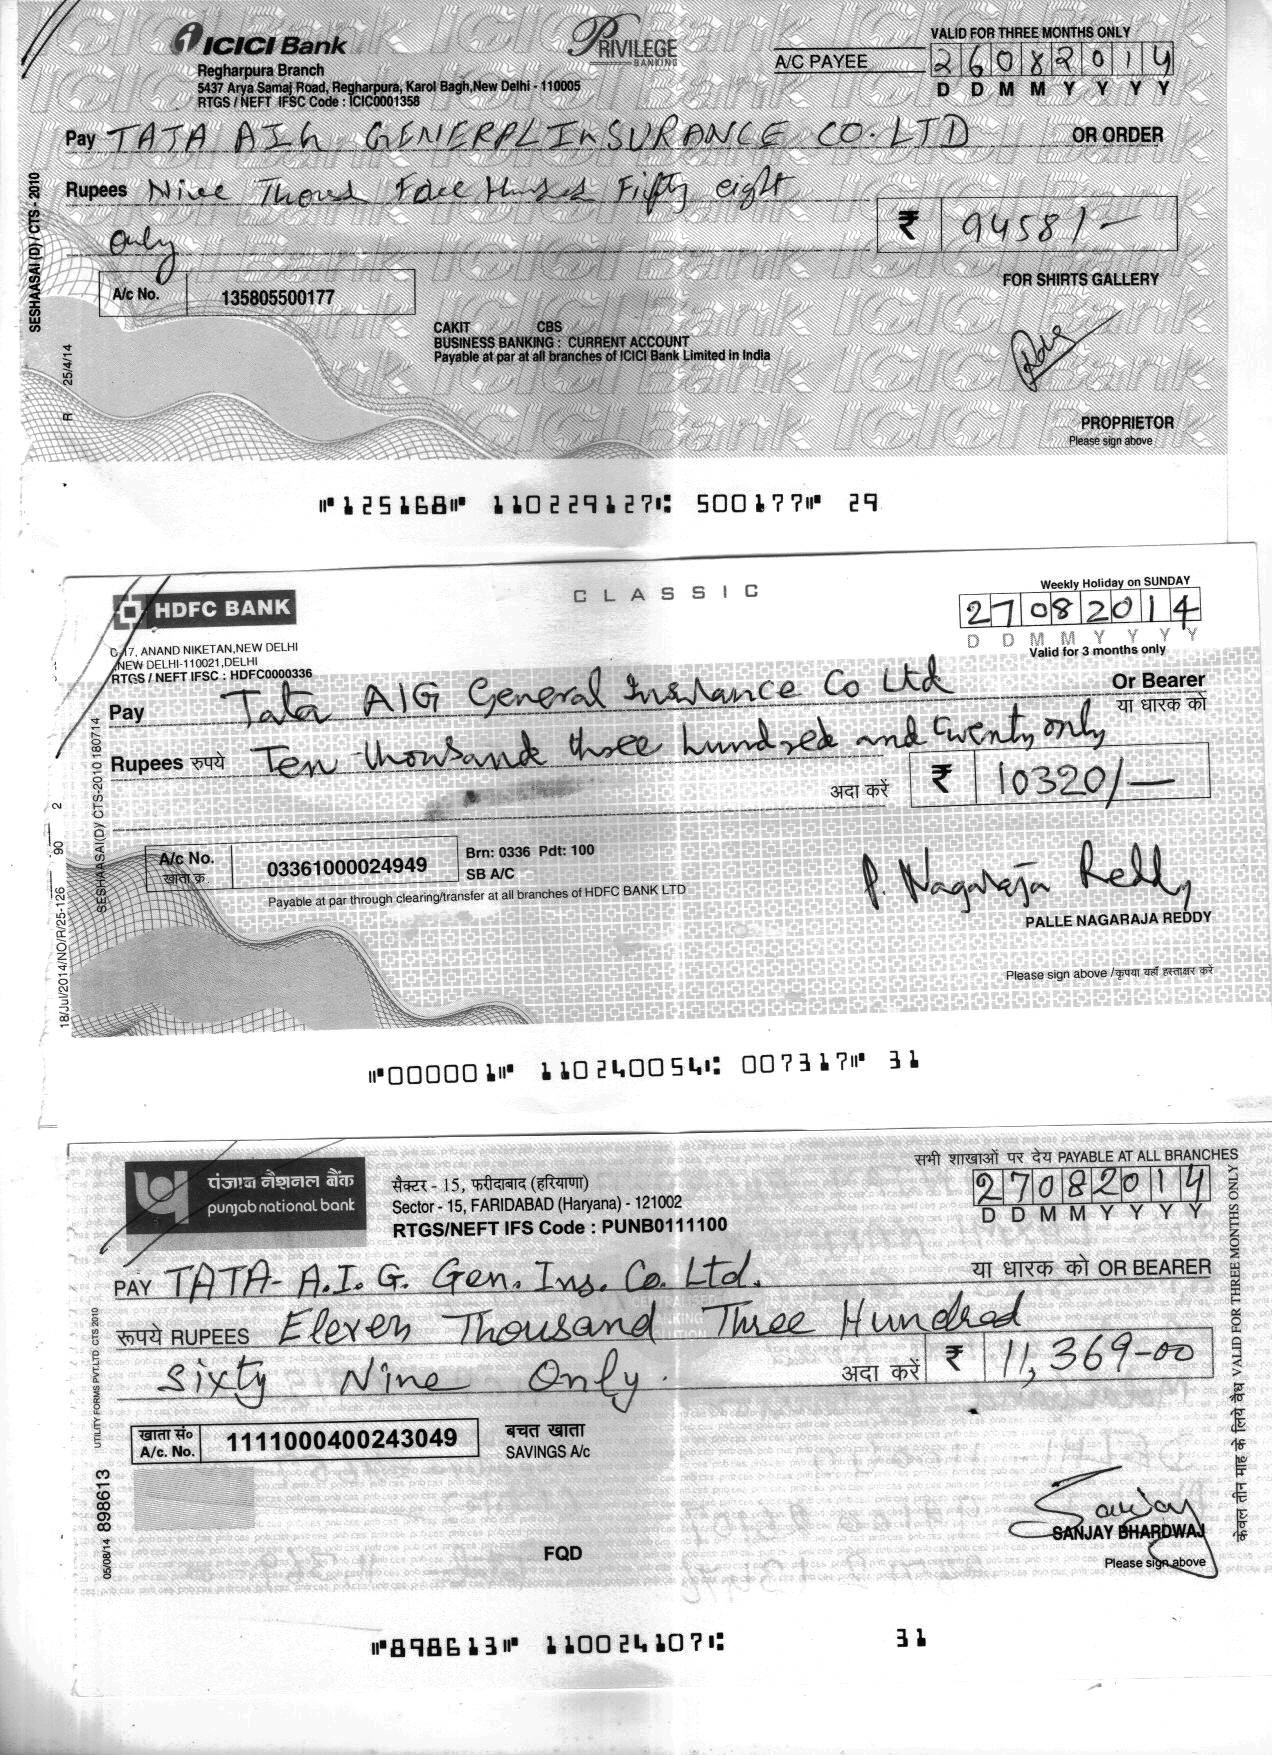 ICICI Bank
PRIVILEGE
BANKING
VALID FOR THREE MONTHS ONLY
Regharpura Branch
A/C PAYEE
26082014
5437 Arya Samaj Road, Regharpura, Karol Bagh,New Delhi - 110005
D D M M Y Y Y Y
RTGS / NEFT IFSC Code : ICIC0001358
Pay TATA AIG GENERAL INSURANCE CO. LTD OR ORDER
Rupees Nine Thousd Four Hundred Fifty eight
only
₹ 9458/-
A/c No. 135805500177
FOR SHIRTS GALLERY
CAKIT CBS
BUSINESS BANKING : CURRENT ACCOUNT
Payable at par at all branches of ICICI Bank Limited in India
PROPRIETOR
Please sign above
SESHAASAI (D) / CTS - 2010
R 25/4/14
⑈125168⑈ 110229127⑆ 500177⑈ 29
HDFC BANK
CLASSIC
Weekly Holiday on SUNDAY
27082014
D D M M Y Y Y Y
Valid for 3 months only
C-17, ANAND NIKETAN,NEW DELHI
,NEW DELHI-110021,DELHI
RTGS / NEFT IFSC : HDFC0000336
Pay Tata AIG General Insurance Co Ltd Or Bearer
या धारक को
Rupees रुपये Ten thousand three hundred and twenty only
अदा करें ₹ 10320/-
A/c No. 03361000024949
खाता क्र
Brn: 0336 Pdt: 100
SB A/C
Payable at par through clearing/transfer at all branches of HDFC BANK LTD
P. Nagaraja Reddy
PALLE NAGARAJA REDDY
Please sign above /कृपया यहाँ हस्ताक्षर करें
SESHAASAI(D)/ CTS-2010 180714
18/Jul/2014/NO/R/25-126 90 2
⑈000001⑈ 110240054⑆ 007317⑈ 31
पंजाब नैशनल बैंक
punjab national bank
सैक्टर - 15, फरीदाबाद (हरियाणा)
Sector - 15, FARIDABAD (Haryana) - 121002
RTGS/NEFT IFS Code : PUNB0111100
सभी शाखाओं पर देय PAYABLE AT ALL BRANCHES
27082014
D D M M Y Y Y Y
PAY TATA- A.I.G. Gen. Ins. Co. Ltd. या धारक को OR BEARER
रूपये RUPEES Eleven Thousand Three Hundred
Sixty Nine Only. अदा करें ₹ 11,369-00
खाता सं० 1111000400243049
A/c. No.
बचत खाता
SAVINGS A/c
Sanjay
SANJAY BHARDWAJ
Please sign above
FQD
UTILITY FORMS PVT.LTD CTS 2010
05/08/14 898613
केवल तीन माह के लिये वैध VALID FOR THREE MONTHS ONLY
⑈898613⑈ 110024107⑆ 31